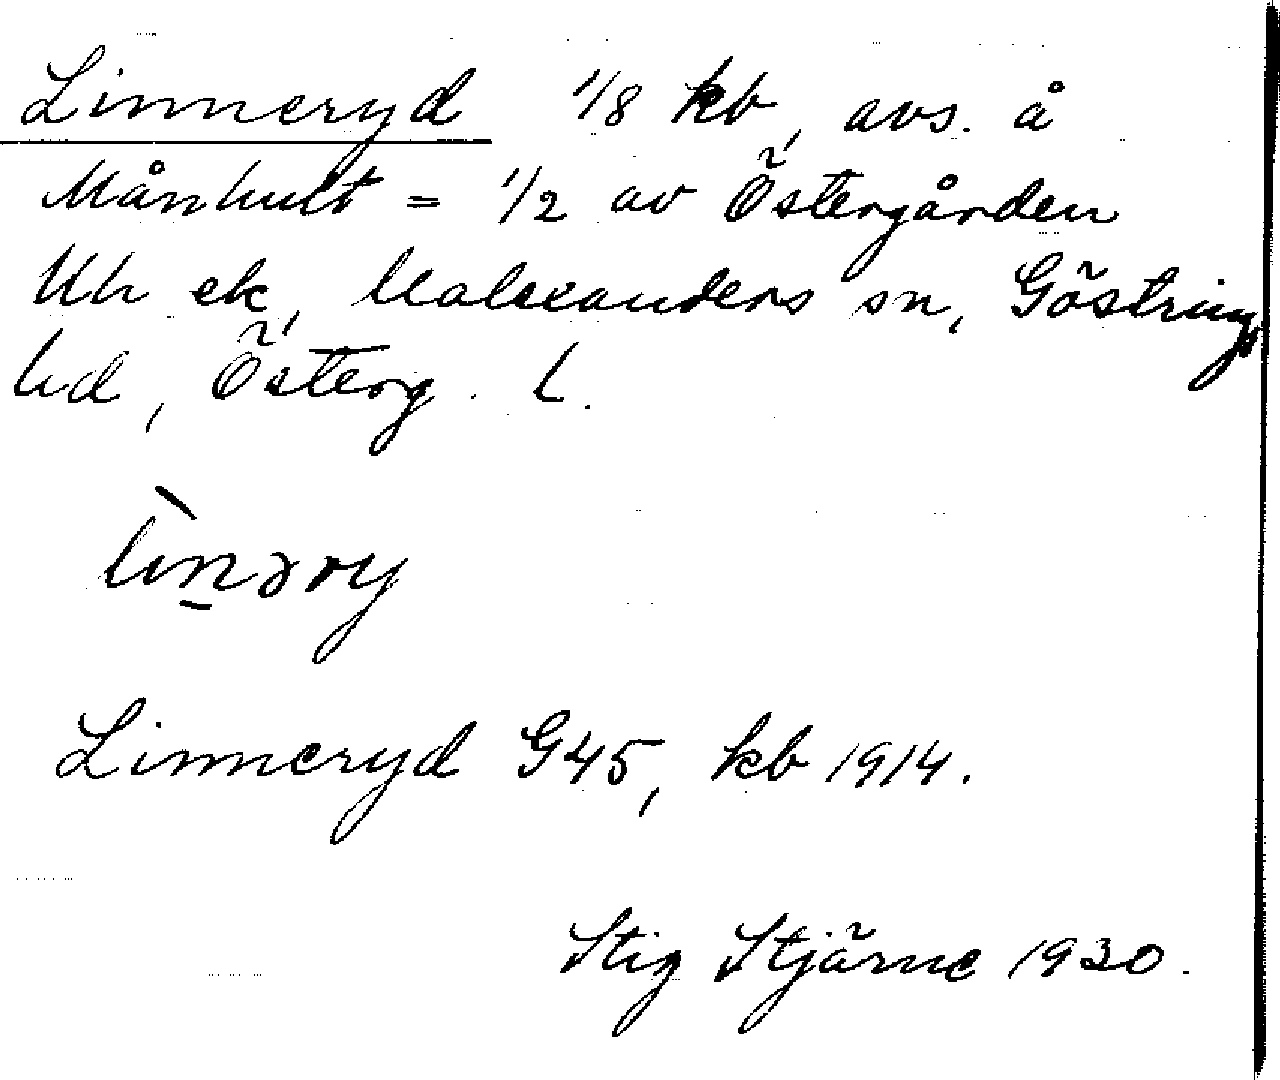 Linneryd 1/8 kb, avs. å
Månhult = 1/2 av Östergården
Uh ek, Malexanders sn, Göstrings
hd, Österg. l.
lìn̠əry
Linneryd G45, kb 1914.
Stig Stjärne 1930.